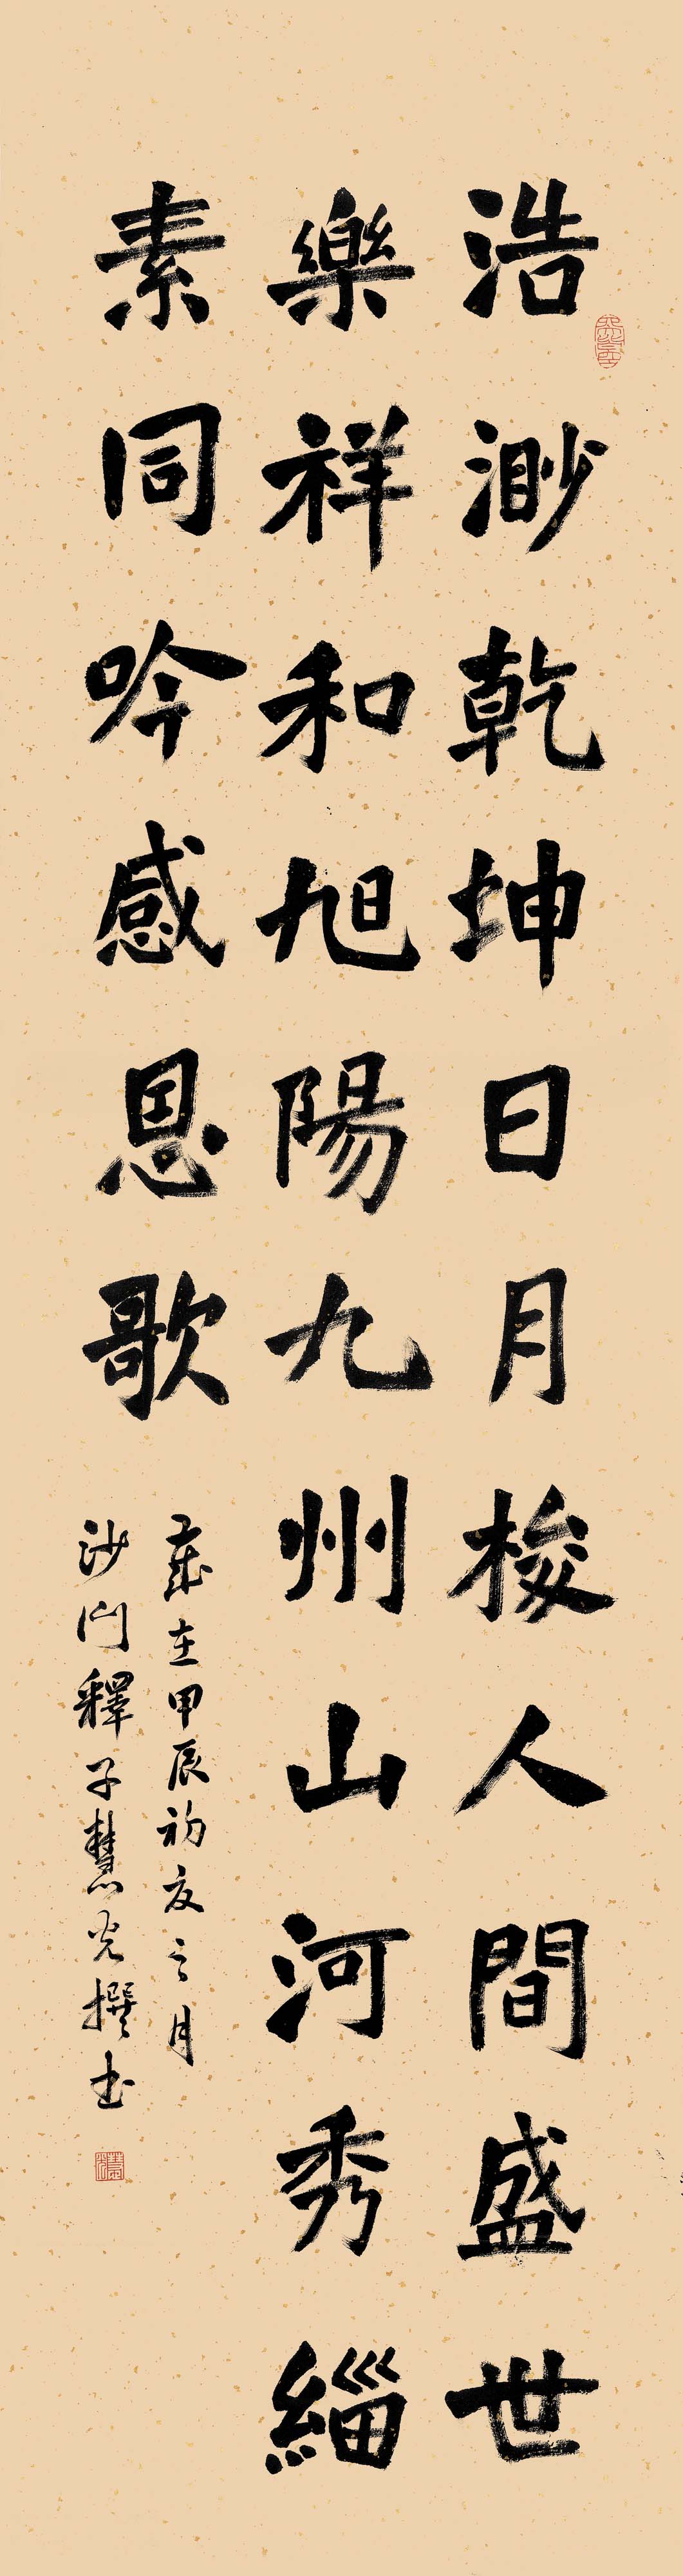 浩渺乾坤日月梭人間盛世
樂祥和旭陽九州山河秀緇
素同吟感恩歌
歲在甲辰初夏之月
沙門釋子慧光撰書